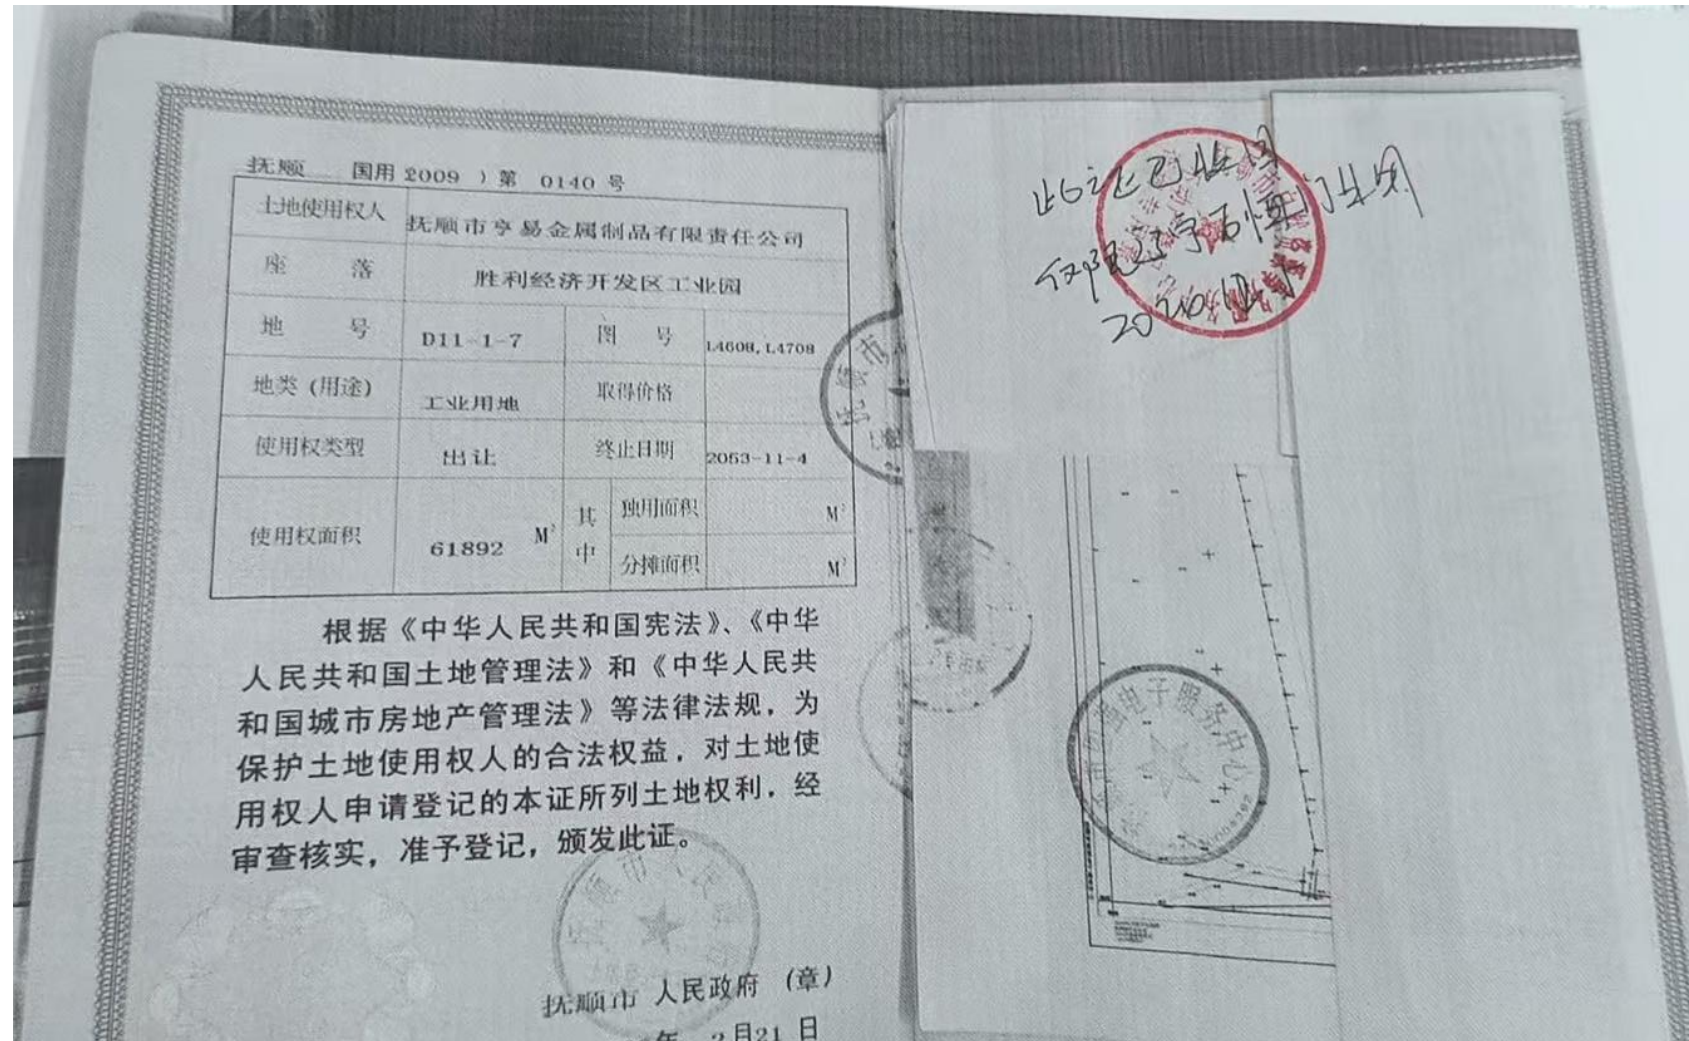 抚顺 国用 2009 ) 第 0140 号
土地使用权人 抚顺市亨易金属制品有限责任公司
座 落 胜利经济开发区工业园
地 号 D11-1-7 图 号 L4608,L4708
地类(用途) 工业用地 取得价格
使用权类型 出让 终止日期 2053-11-4
使用权面积 61892 M² 其中 独用面积 M²
分摊面积 M²
根据《中华人民共和国宪法》、《中华
人民共和国土地管理法》和《中华人民共
和国城市房地产管理法》等法律法规，为
保护土地使用权人的合法权益，对土地使
用权人申请登记的本证所列土地权利，经
审查核实，准予登记，颁发此证。
抚顺市 人民政府 (章)
年 2月21 日
此证已收回
仅限辽宁
电子服务中心
抚顺市